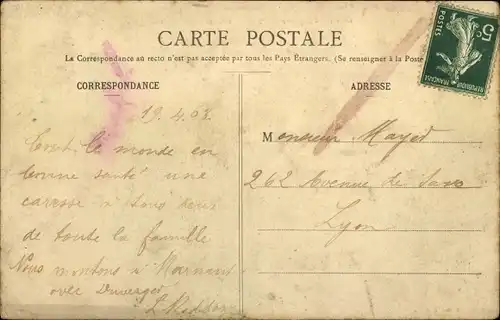 CARTE POSTALE
La Correspondance au recto n'est pas acceptée par tous les Pays Étrangers. (Se renseigner à la Poste
CORRESPONDANCE
ADRESSE
5c
POSTES
REPUBLIQUE FRANÇAISE
19.4.08
Tout le monde en
bonne santé une
caresse à tous
de toute la famille
Nous montons à
avec
Monsieur
262 Avenue de Saxe
Lyon